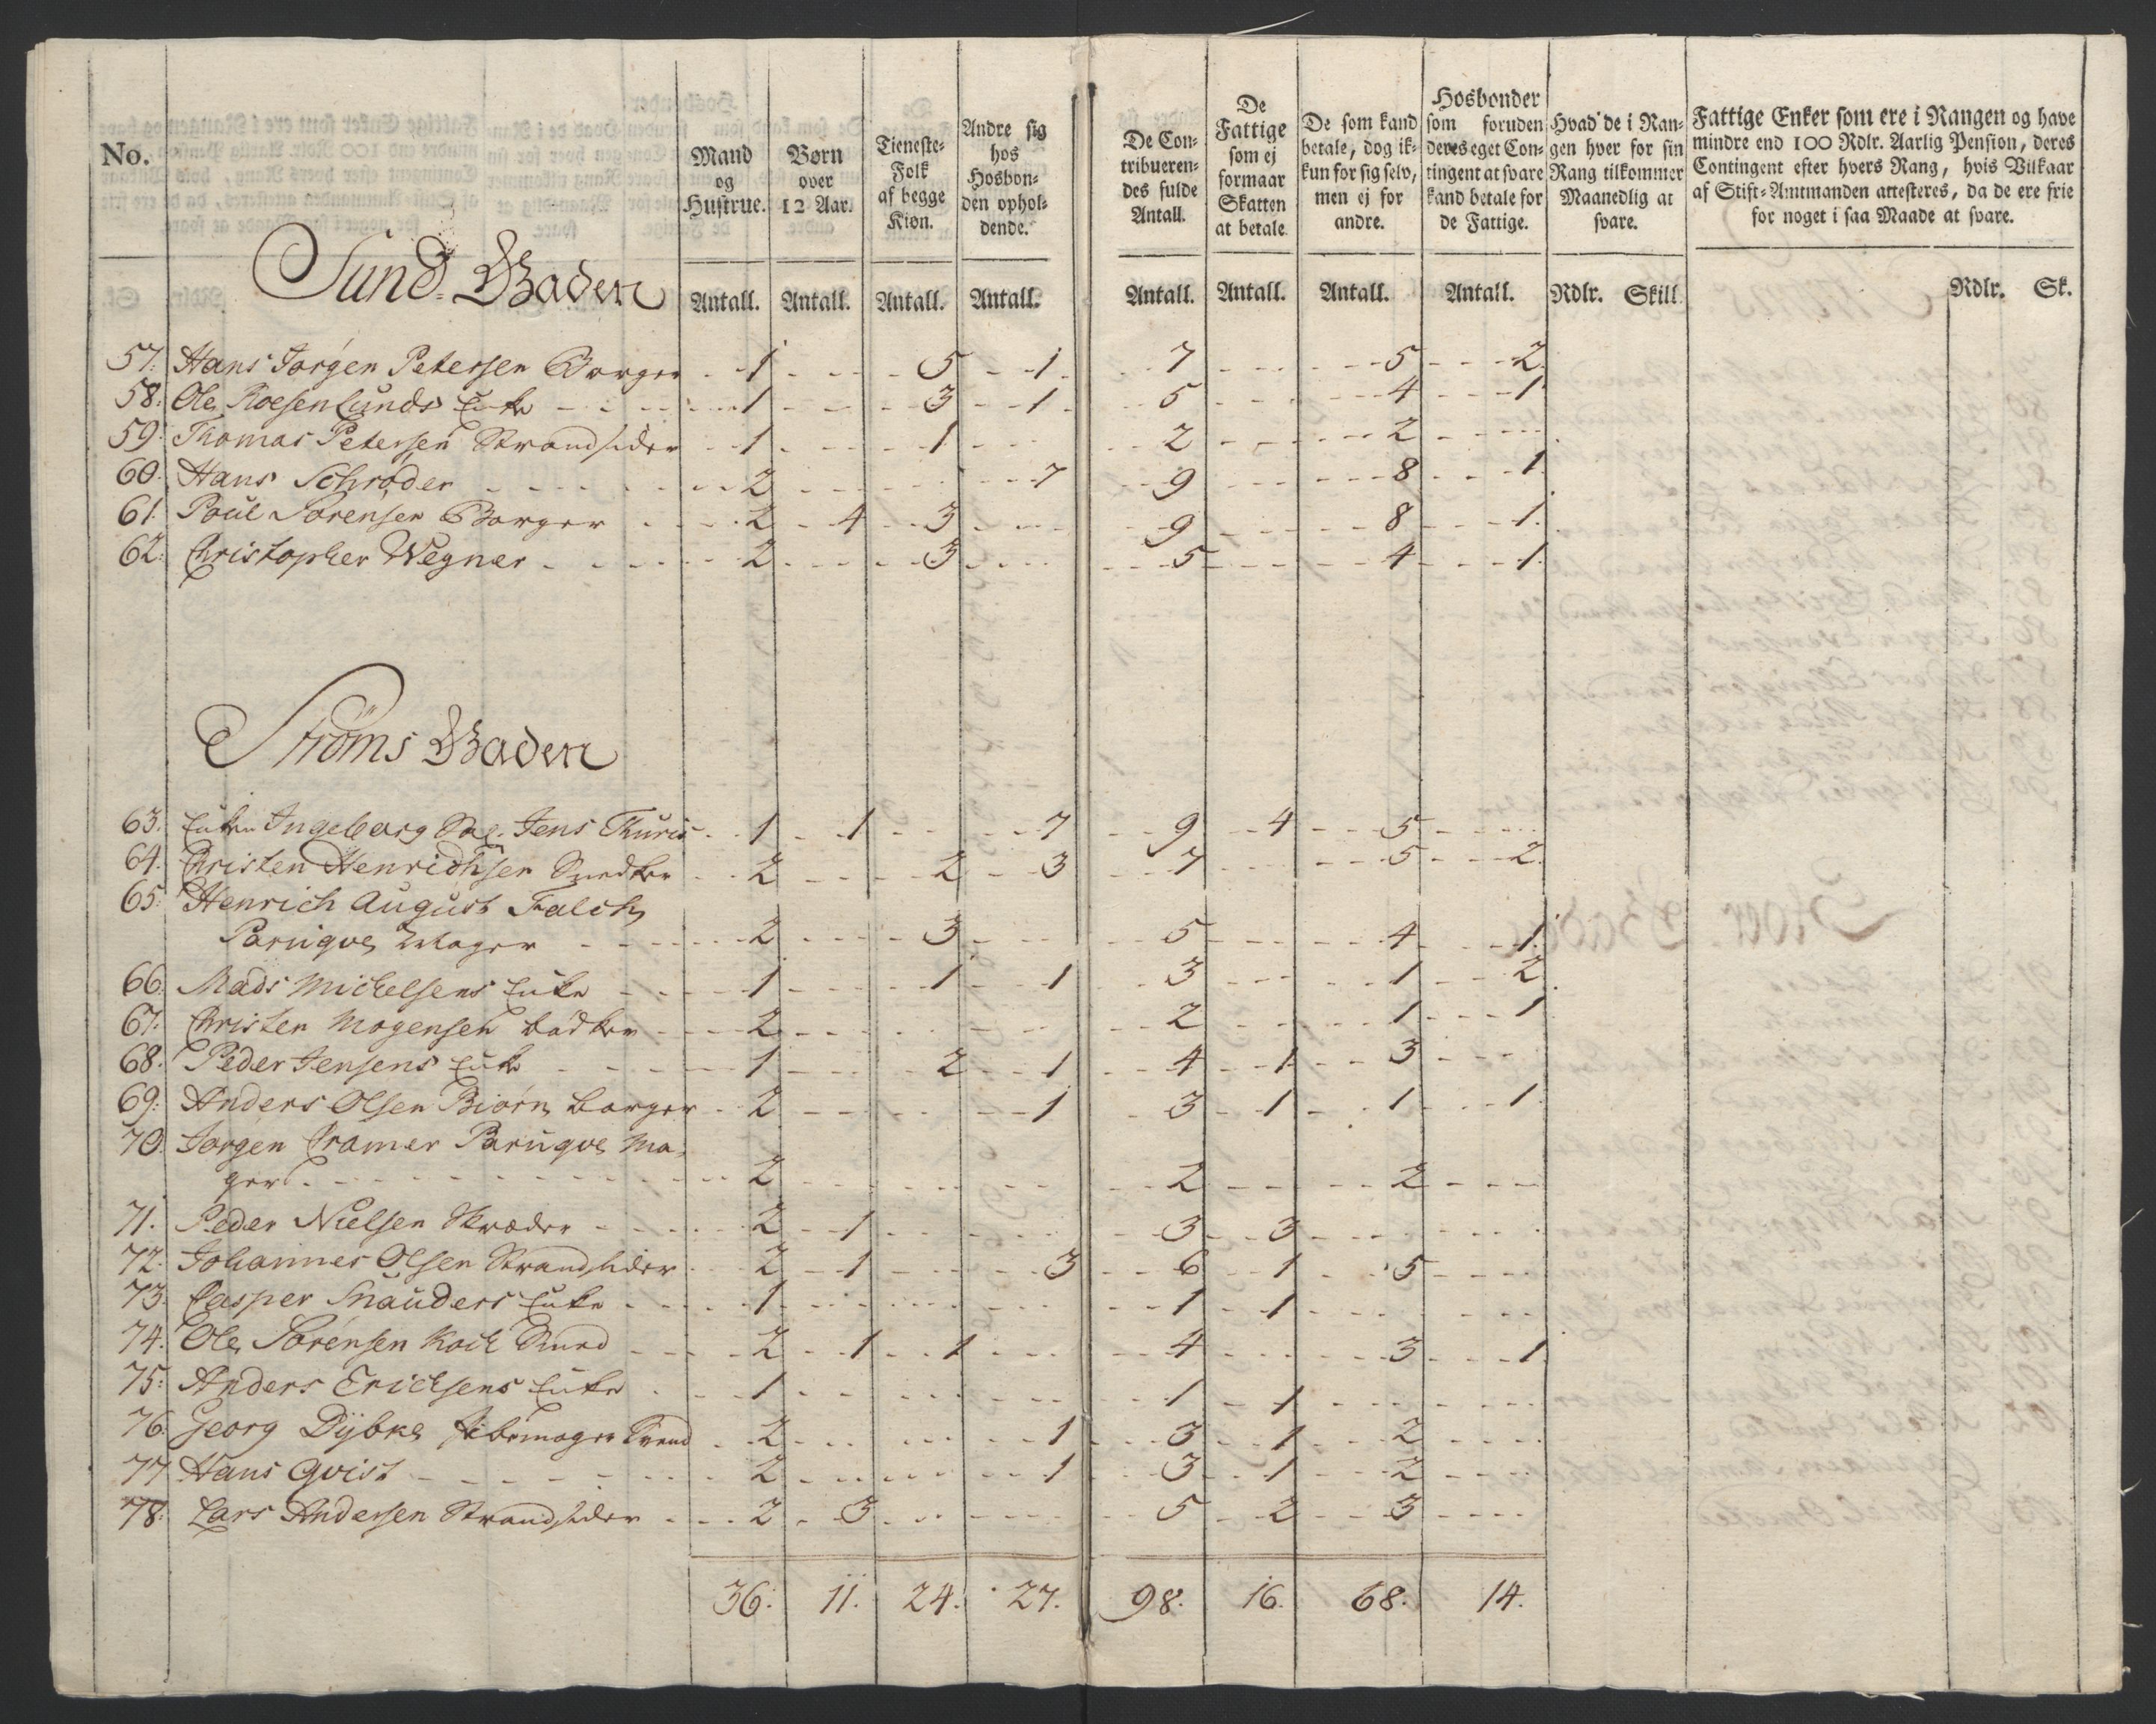 No.
Mand og Hustrue.
Børn over 12 Aar.
Tieneste-Folk af begge Kiøn.
Andre sig hos Hosbon-den ophol-dende.
De Con-tribueren-des fulde Antall.
De Fattige som ej formaar Skatten at betale
De som kand betale, dog ik-kun for sig selv, men ej for andre.
Hosbonder som foruden deres eget Con-tingent at svare kand betale for de Fattige.
Hvad de i Ran-gen hver for sin Rang tilkommer Maanedlig at svare.
Fattige Enker som ere i Rangen og have mindre end 100 Rdlr. Aarlig Pension, deres Contingent efter hvers Rang, hvis Vilkaar af Stift-Amtmanden attesteres, da de ere frie for noget i saa Maade at svare.
Antall. Antall. Antall. Antall. Antall. Antall. Antall. Antall. Rdlr. Skill. Rdlr. Sk.
Sund-Gaden
57. Hans Jørgen Petersen Borger 1 5 1 7 5 2
58. Ole Roesenlunds Enke 1 3 1 5 4 1
59. Thomas Petersen Strandsider 1 1 2 2
60. Hans Schrøder 2 7 9 8 1
61. Poul Sørensen Borger 2 4 3 9 8 1
62. Christopher Wegner 2 3 5 4 1
Strøms Gaden
63. Enken Ingeborg Sal. Jens Thuris 1 1 7 9 4 5
64. Christen Henrichsen Snedker 2 2 3 7 5 2
65. Henrich August Falch
Paruqve Mager 2 3 5 4 1
66. Mads Mickelsens Enke 1 1 1 3 1 2
67. Christen Mogensen bødker 2 2 1 1
68. Peder Jensens Enke 1 2 1 4 1 3
69. Anders Olsen Biørn borger 2 1 3 1 1 1
70. Jørgen Cramer Paruqve Ma-
ger 2 2 2
71. Peder Nielsen Skræder 2 1 3 3
72. Johannes Olsen Strandsider 2 1 3 6 1 5
73. Casper Snauders Enke 1 1 1
74. Ole Sørensen Koch Smed 2 1 1 4 3 1
75. Anders Ericksens Enke 1 1 1
76. Georg Dÿbke Svend 2 1 3 1 2
77. Hans Qvist 2 1 3 1 2
78. Lars Andersen Strandsider 2 3 5 2 3
36. 11. 24. 27. 98. 16. 68. 14.